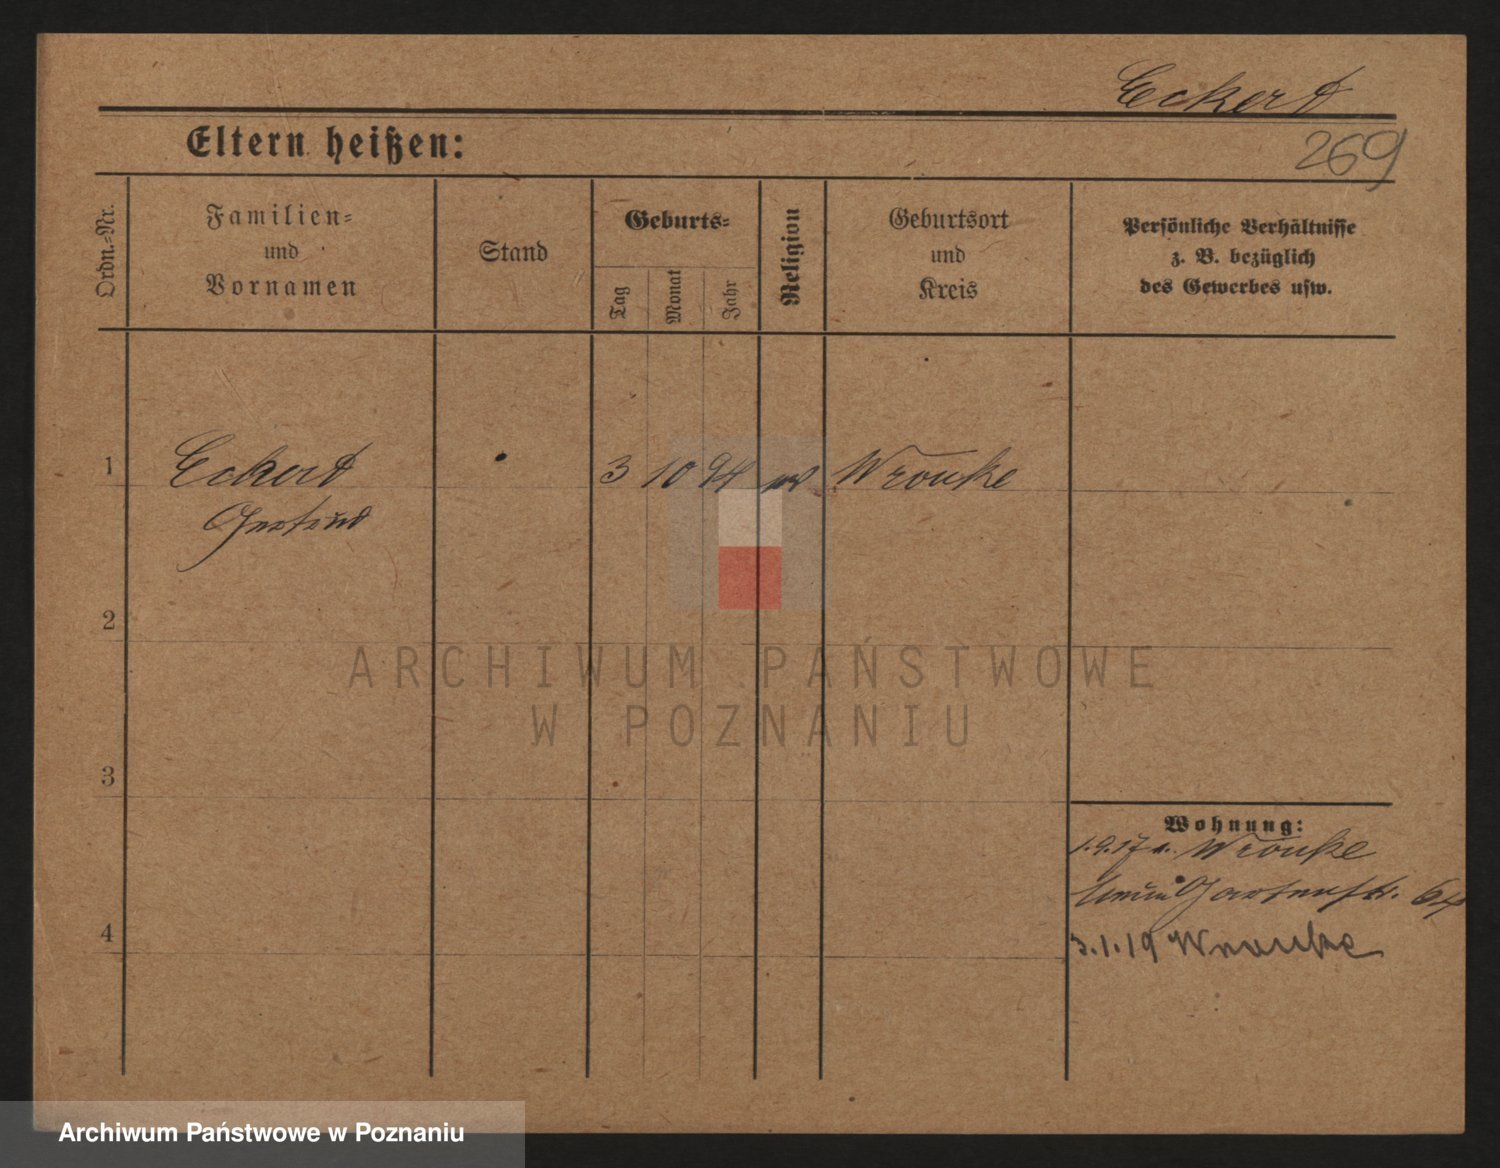 Eckert
Eltern heißen:
269
Ordn.-Nr.
Familien-
und
Vornamen
Stand
Geburts-
Tag
Monat
Jahr
Religion
Geburtsort
und
Kreis
Persönliche Verhältnisse
z. B. bezüglich
des Gewerbes usw.
1 Eckert 3 10 94 Wronke
Gertrud
2
3
4
Wohnung:
1.9.17 v. Wronke
Gartenstr. 64
3.1.19 Wronke
ARCHIWUM PAŃSTWOWE
W POZNANIU
Archiwum Państwowe w Poznaniu